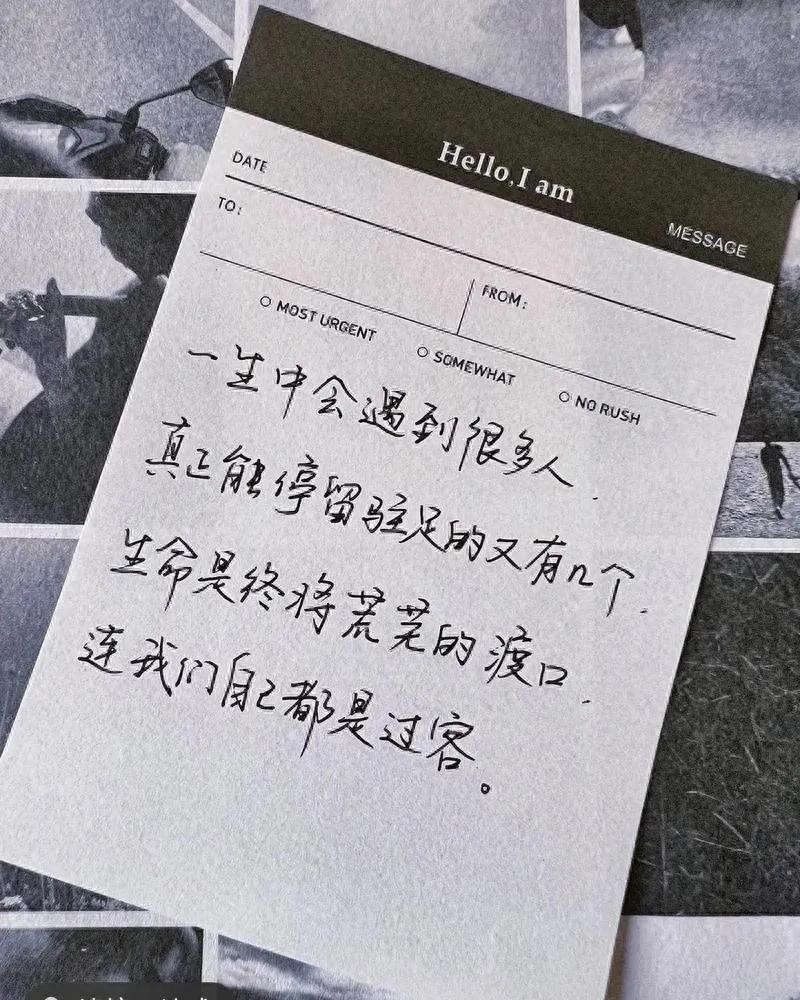 Hello, I am
MESSAGE
DATE
TO:
FROM:
○ MOST URGENT ○ SOMEWHAT ○ NO RUSH
一生中会遇到很多人.
真正能停留驻足的又有几个.
生命是终将荒芜的渡口.
连我们自己都是过客。